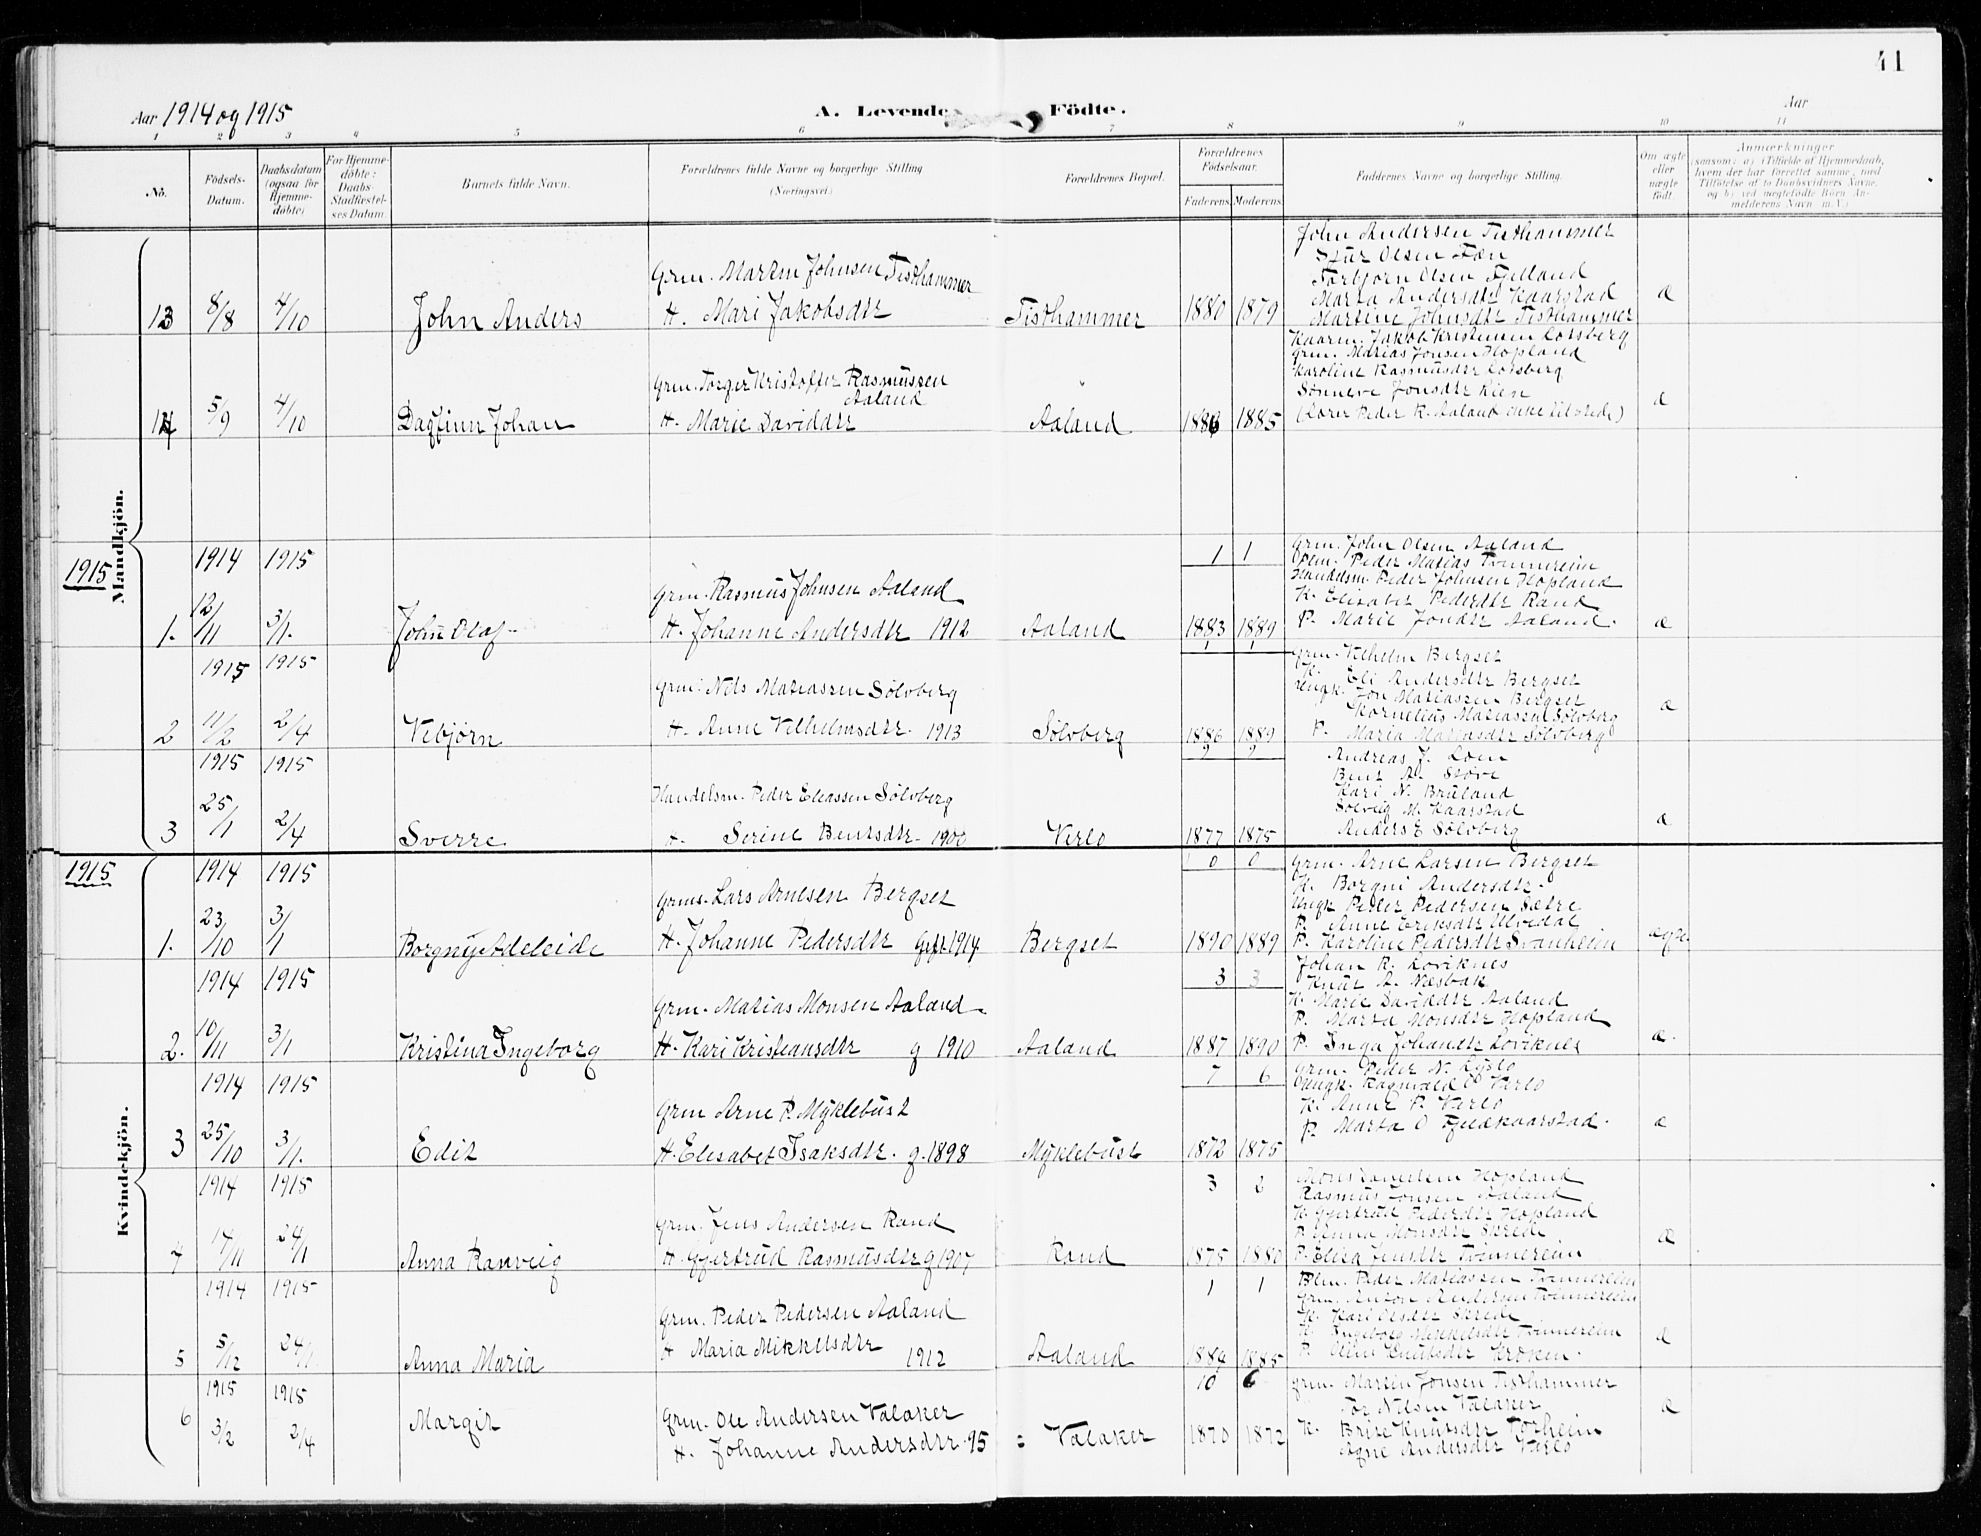 41
Aar 1914 og 1915
A. Levende Födte.
Aar
1 2 3 4 5 6 7 8 9 10 11
No.
Födsels-Datum.
Daabsdatum (ogsaa for Hjemme-döbte)
For Hjemme-döbte: Daabs-Stadfæstel-ses Datum.
Barnets fulde Navn.
Forældrenes fulde Navne og borgerlige Stilling (Næringsvei.)
Forældrenes Bopæl.
Forældrenes Födselsaar.
Faderens Moderens
Faddernes Navne og borgerlig Stilling.
Om ægte eller uægte født.
Anmærkninger
(saasom: a) i Tilfælde af Hjemmedaab, hvem der har forrettet samme, med Tilföielse af to Daabsvidners Navne, og b) ved uægtefödte Börn An-melderens Navn m. V.)
Mandkjön.
13 8/8 4/10 John Anders
Grm. Martin Johnsen Tisthammer
H. Mari Jakobsdtr
Tisthammer 1880 1879
John Andersen Tisthammer
Olsen
Torbjorn Olsen Fjelland
Marta Andersdtr Kaarstad
Martine Johnsdtr Tisthammer
æ
14 5/9 4/10 Dagfinn Johan
Grm. Torger Kristoffer Rasmussen Aaland
H. Marie Daviddtr
Aaland 1886 1885
Kaarm. Jakob Kristensen Lotsberg
Grm. Matias Jonsen Hopland
Karoline Rasmusdtr Lotsberg
Sønneve Jonsdtr Rien
(Lærer Peder R. Aaland ikke tilstede)
æ
1915
1914 1915
1. 12/11 3/1. John Olaf
Grm. Rasmus Johnsen Aaland
H. Johanne Andersdtr 1912
Aaland 1 1 1883 1889
Grm. John Olsen Aaland
Peder Matias Tvinnereim
Handelsm. Peder Johnsen Hopland
K. Elisabet Pedersdtr Rand
P. Marie Jonsdtr Aaland.
æ
1915 1915
2 11/2 2/4 Vebjørn
Grm. Nils Matiassen Sølvberg
H. Anne Vilhelmsdtr. 1913
Sølvberg 1 1 1886 1889
Grm. Vilhelm Bergset
K. Eli Andersdtr Bergset
Ungk. Jon Matiassen Bergset
Kornelius Matiassen Sølvberg
P. Maria Matiasdtr Sølvberg
æ
1915 1915
3 25/1 2/4 Sverre
Handelsm. Peder Eliassen Sølvberg
H. Serine Bentsdtr. 1900
Verlo 9 9 1877 1875
Andreas J. Loen
Bent A. Støve
Kari N. Bruland
Solveig M. Kaarstad
Anders E Sølvberg
æ
1915
Kvindekjön.
1914 1915
1. 23/10 3/1 Borgny Adeleide
Grms. Lars Arnesen Bergset
H. Johanne Pedersdtr Gift 1914
Bergset 0 0 1890 1889
Grm. Arne Larsen Bergset
K. Borgni Andersdtr.
Ungk Peder Pedersen Sætre
P. Anne Eriksdtr Ulvedal
P. Karoline Pedersdtr Svanheim
ægte
1914 1915
2. 10/11 3/1 Kristina Ingeborg
Grm. Matias Monsen Aaland
H. Kari Kristiansdtr g 1910
Aaland 3 3 1887 1890
Johan R. Loviknes
Knut A. Næsbak
K. Marie Daviddtr Aaland
P. Marta Monsdtr Hopland
P. Inga Johansdtr Loviknes
æ.
1914 1915
3 25/10 3/1. Edit
Grm Arne P. Myklebust
H. Elisabet Isaksdtr. g. 1898
Myklebust 7 6 1872 1875
Grm. Peder N.
Ungk. Ragnvald Verlo
K. Anne P. Verlo
P. Marta O Fjeldkaarstad.
æ
1914 1915
4 17/11 24/1 Anna Ranveig
Grm. Jens Andersen Rand
H. Gjertrud Rasmusdtr g 1907
Rand 3 2 1875 1880
Mons Hopland
Rasmus Jonsen Aaland
K. Gjertrud Pedersdtr Hopland
P. Monsdtr Skrede
P. Elisa Jensdtr Tvinnereim
æ
1914 1915
5 5/12 24/1. Anna Maria
Grm. Peder Pedersen Aaland
H Maria Mikkelsdtr 1912
Aaland 1 1 1884 1885
Peder Matiassen Tvinnereim
Grm. Anton Andersen Tvinnereim
K. Kari Olsdtr Skrede
K. Ingeborg Mikkelsdtr Tvinnereim
P. Knutsdtr Kroken.
æ
1915 1915
6 3/2 2/4 Margit
Grm. Ole Andersen Valaker
H. Johanne Andersdtr. 95
Valaker 10 6 1870 1872
Grm. Martin Jonsen Tisthammer
Tor Nilsen Valaker
K. Brite Knutsdtr Torheim
Agne Andersdtr Varlo
æ